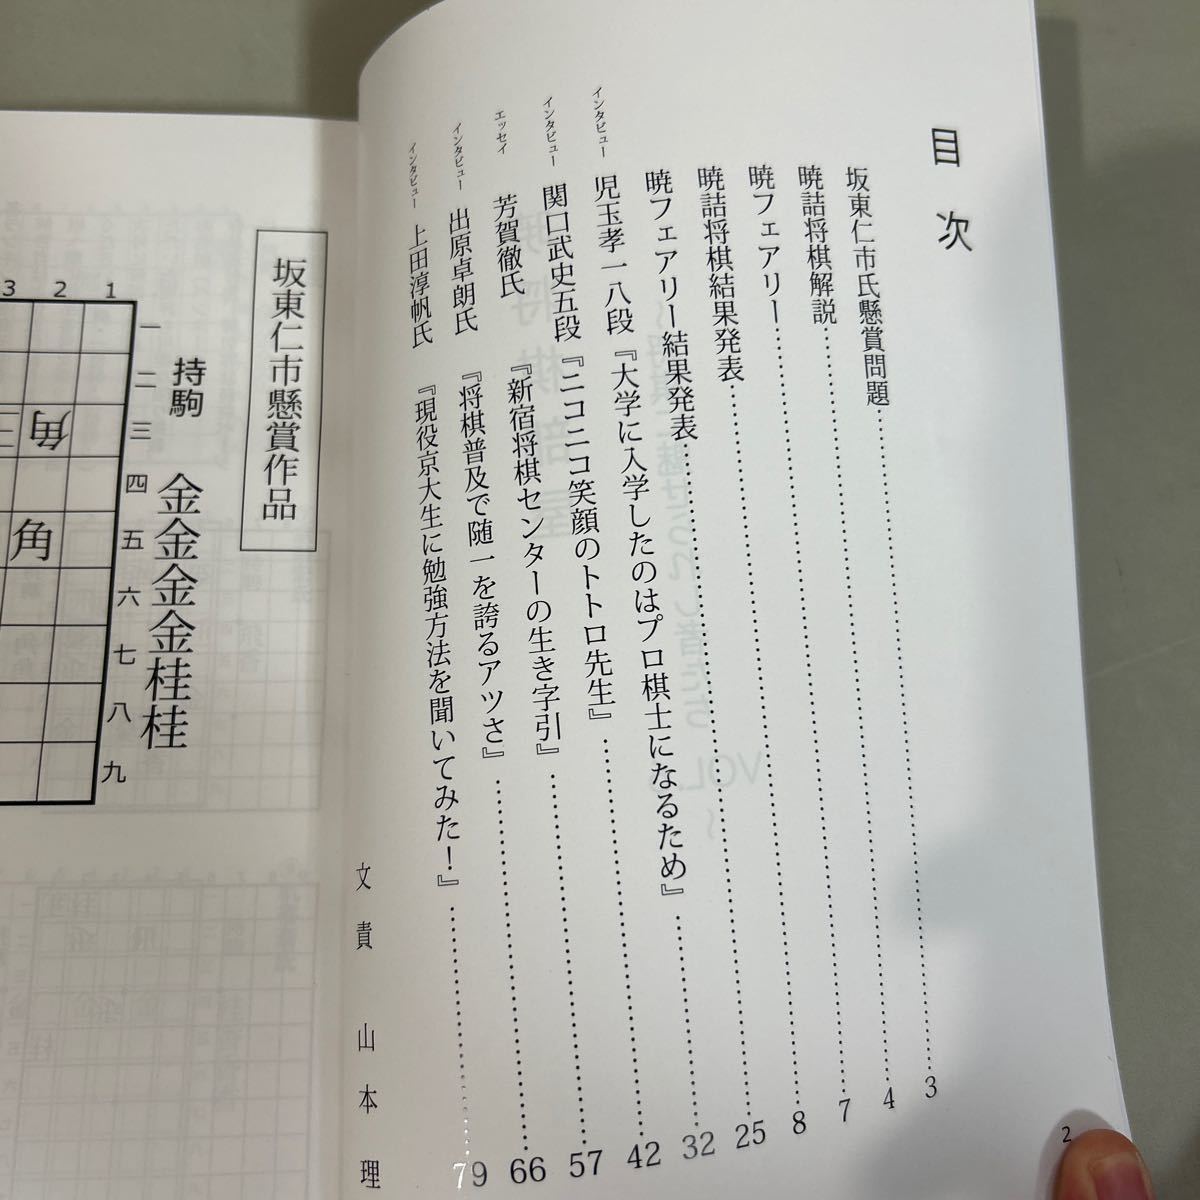 目次
坂東仁市氏懸賞問題……………………3
暁詰将棋解説……………………4
暁フェアリー……………………7
暁詰将棋結果発表……………………8
暁フェアリー結果発表……………………25
インタビュー 児玉孝一八段 『大学に入学したのはプロ棋士になるため』……………………32
インタビュー 関口武史五段 『ニコニコ笑顔のトトロ先生』……………………42
エッセイ 芳賀徹氏 『新宿将棋センターの生き字引』……………………57
インタビュー 出原卓朗氏 『将棋普及で随一を誇るアツさ』……………………66
インタビュー 上田淳帆氏 『現役京大生に勉強方法を聞いてみた！』……………………79
文責 山本理
2
坂東仁市懸賞作品
持駒 金金金金桂桂
3 2 1
一
二
三
四
五
六
七
八
九
角
角